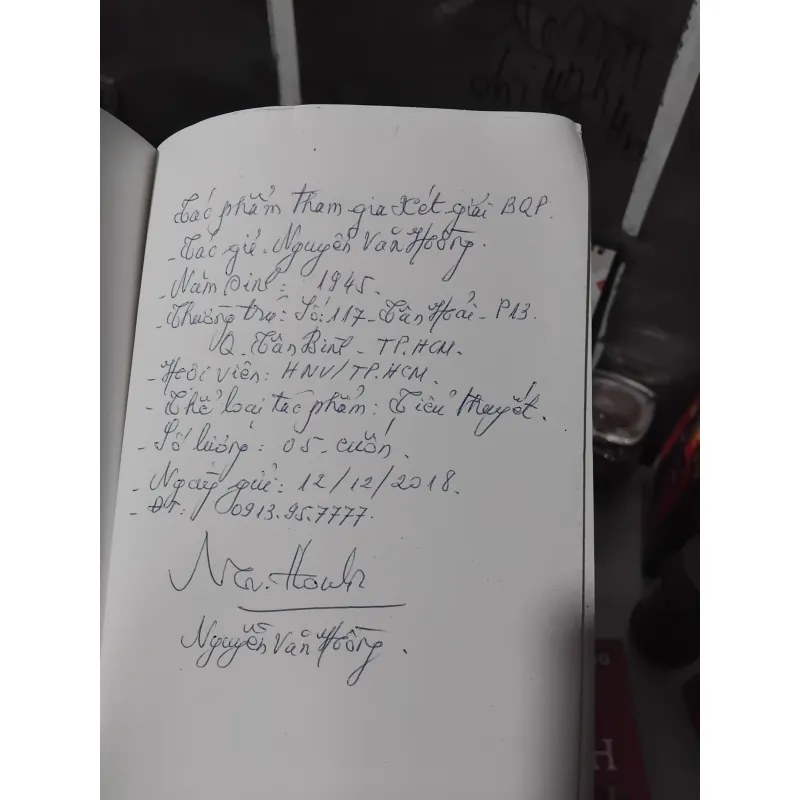 Tác phẩm tham gia xét giải BQP.
- Tác giả. Nguyễn Văn Hồng.
- Năm sinh: 1945.
- Thường trú: Số: 117 - Tân Hải - P13.
Q. Tân Bình - TP. HCM.
- Hội viên: HNV/TP.HCM.
- Thể loại tác phẩm: Tiểu thuyết.
- Số lượng: 05 - cuốn.
- Ngày gửi: 12/12/2018.
- ĐT: 0913.95.7777.
Nguyễn Văn Hồng.
H